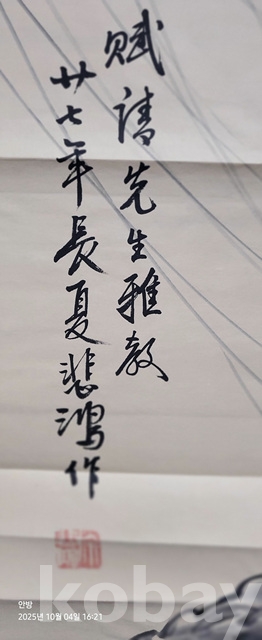 赋请先生雅教
廿七年长夏悲鸿作
안방
2025년 10월 04일 16:21
kobay